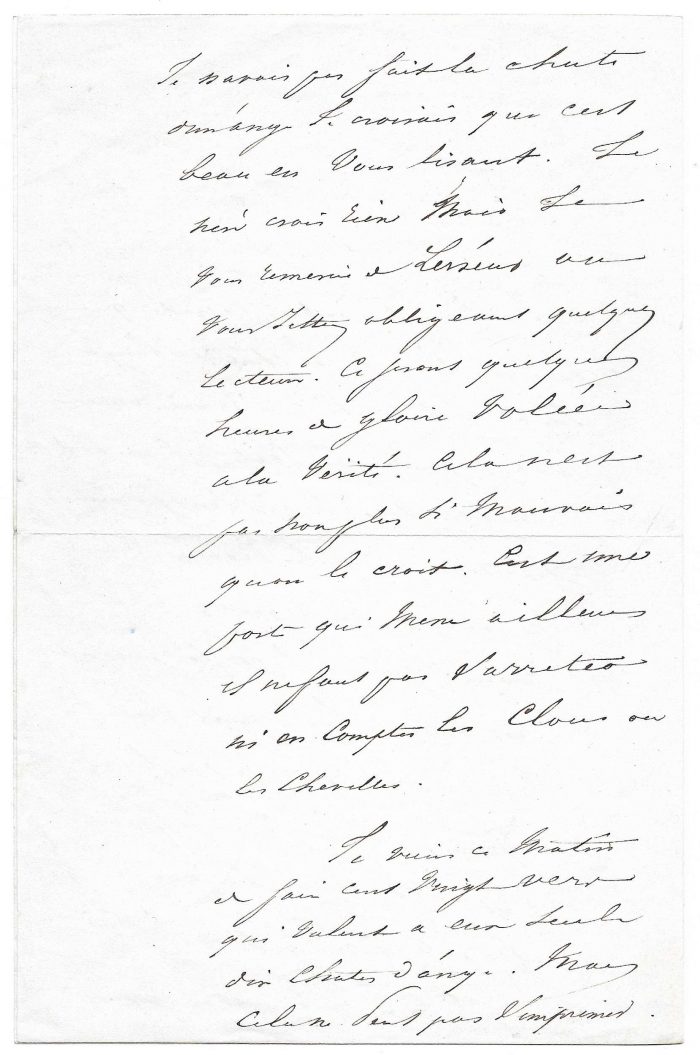 Je navais pas fait la chute
dun ange Je croirais que cest
beau en Vous lisant. Je
nen crois Rien Mais Je
Vous remercie de
obligeant quelques
lecteurs. Ce seront quelques
heures de gloire Volées
a la Vérité. Cela nest
pas non plus Si Mauvais
quon le croit. Cest une
porte qui Mene ailleurs
il ne faut pas Sarreter
ni en Compter les Clous ou
les Chevilles.
Je viens ce Matin
de faire cent Vingt vers
qui Valent a eux Seuls
dix Chutes dánge. Mais
cela ne Peut pas Simprimer.